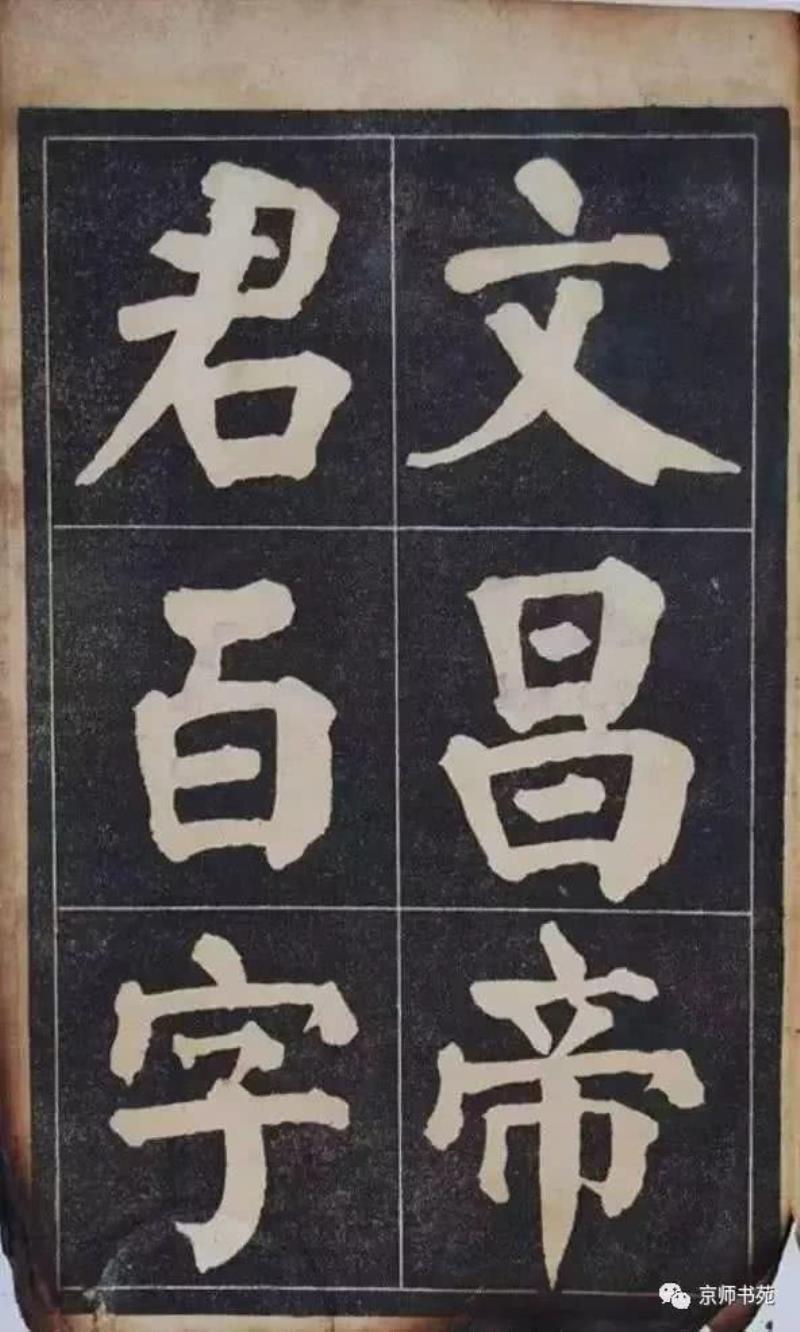 文昌帝
君百字
京师书苑